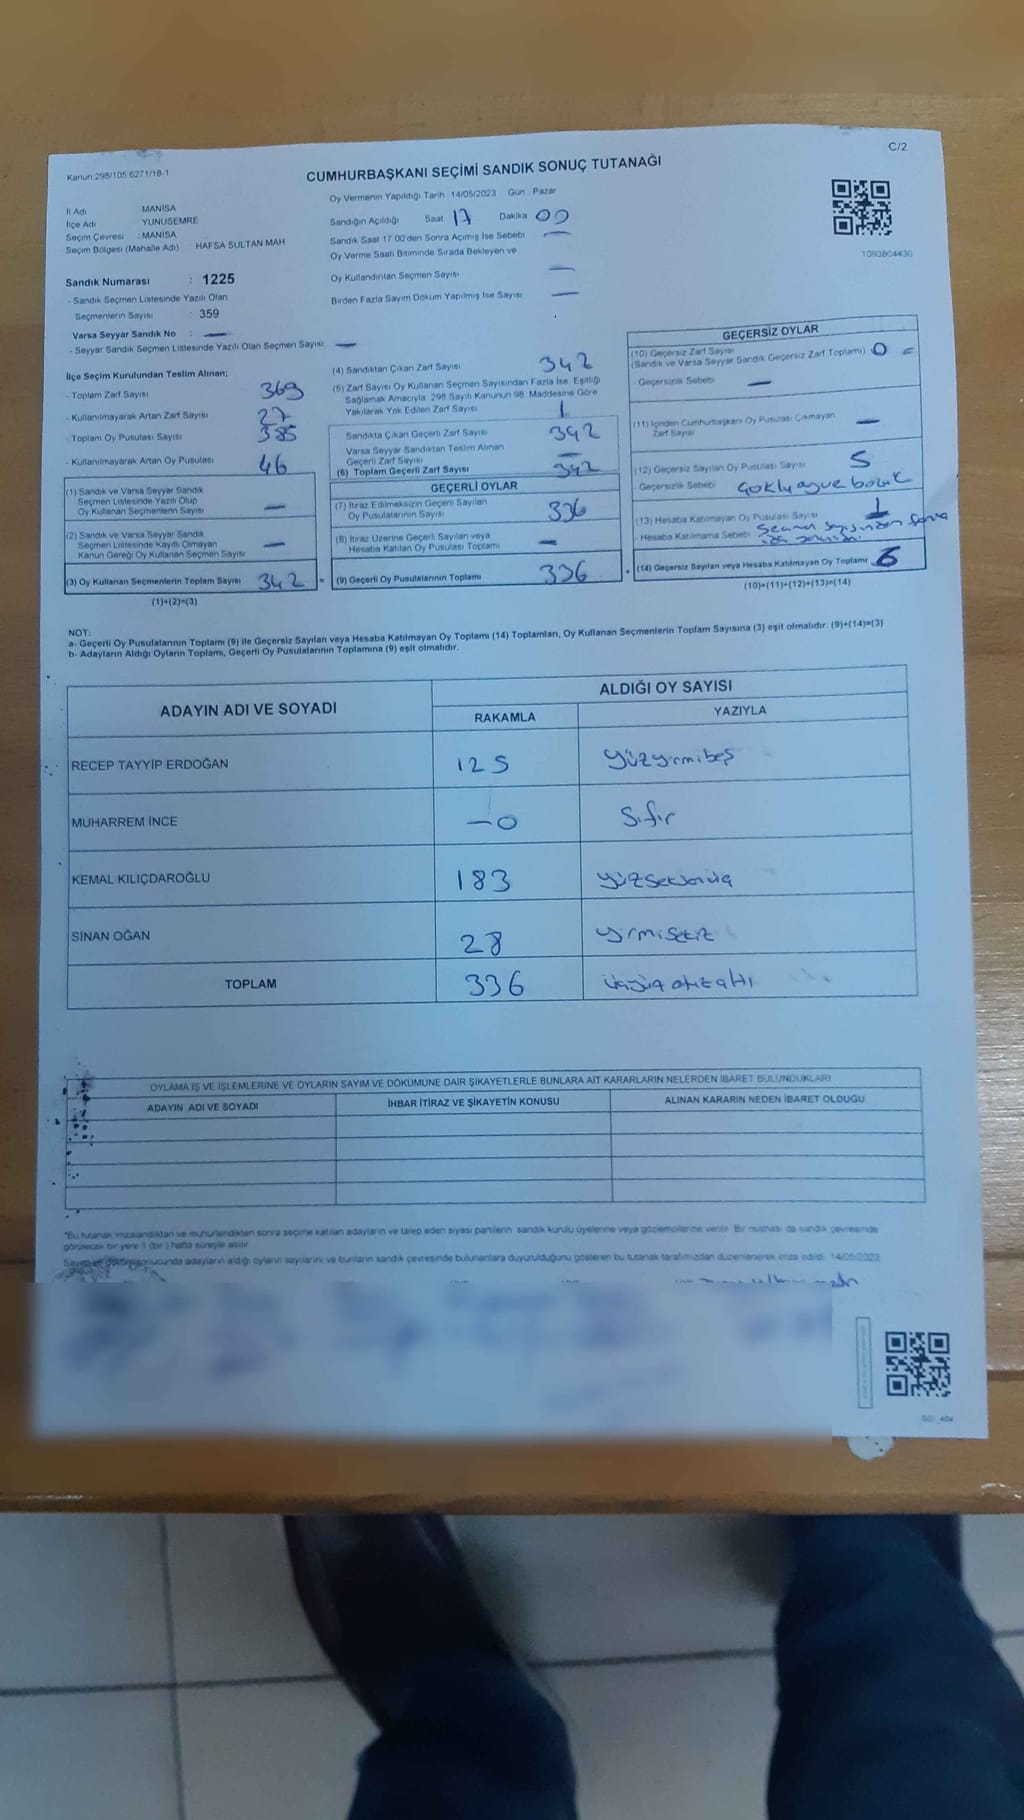 C/2
Kanun 298/105 6271/18-1
CUMHURBAŞKANI SEÇİMİ SANDIK SONUÇ TUTANAĞI
İl Adı MANİSA
İlçe Adı YUNUSEMRE
Seçim Çevresi : MANİSA
Seçim Bölgesi (Mahalle Adı) HAFSA SULTAN MAH
Sandık Numarası : 1225
- Sandık Seçmen Listesinde Yazılı Olan
Seçmenlerin Sayısı : 359
Varsa Seyyar Sandık No : —
- Seyyar Sandık Seçmen Listesinde Yazılı Olan Seçmen Sayısı —
Oy Vermenin Yapıldığı Tarih 14/05/2023 Gün Pazar
Sandığın Açıldığı Saat 17 Dakika 00
Sandık Saat 17:00'den Sonra Açılmış İse Sebebi —
Oy Verme Saati Bitiminde Sırada Bekleyen ve
Oy Kullandırılan Seçmen Sayısı —
Birden Fazla Sayım Döküm Yapılmış İse Sayısı —
1093804430
İlçe Seçim Kurulundan Teslim Alınan;
- Toplam Zarf Sayısı 369
- Kullanılmayarak Artan Zarf Sayısı 27
- Toplam Oy Pusulası Sayısı 385
- Kullanılmayarak Artan Oy Pusulası 46
(1) Sandık ve Varsa Seyyar Sandık
Seçmen Listesinde Yazılı Olup
Oy Kullanan Seçmenlerin Sayısı —
(2) Sandık ve Varsa Seyyar Sandık
Seçmen Listesinde Kayıtlı Olmayan
Kanun Gereği Oy Kullanan Seçmen Sayısı —
(3) Oy Kullanan Seçmenlerin Toplam Sayısı 342 =
(1)+(2)=(3)
(4) Sandıktan Çıkan Zarf Sayısı 342
(5) Zarf Sayısı Oy Kullanan Seçmen Sayısından Fazla İse, Eşitliği
Sağlamak Amacıyla, 298 Sayılı Kanunun 98. Maddesine Göre
Yakılarak Yok Edilen Zarf Sayısı 1
Sandıkta Çıkan Geçerli Zarf Sayısı 342
Varsa Seyyar Sandıktan Teslim Alınan
Geçerli Zarf Sayısı —
(6) Toplam Geçerli Zarf Sayısı 342
GEÇERLİ OYLAR
(7) İtiraz Edilmeksizin Geçerli Sayılan
Oy Pusulalarının Sayısı 336
(8) İtiraz Üzerine Geçerli Sayılan veya
Hesaba Katılan Oy Pusulası Toplamı —
(9) Geçerli Oy Pusulalarının Toplamı 336 +
GEÇERSİZ OYLAR
(10) Geçersiz Zarf Sayısı
(Sandık ve Varsa Seyyar Sandık Geçersiz Zarf Toplamı) 0
- Geçersizlik Sebebi —
(11) İçinden Cumhurbaşkanı Oy Pusulası Çıkmayan
Zarf Sayısı —
(12) Geçersiz Sayılan Oy Pusulası Sayısı 5
- Geçersizlik Sebebi
(13) Hesaba Katılmayan Oy Pusulası Sayısı 1
- Hesaba Katılmama Sebebi Seçmen sayısından fazla
(14) Geçersiz Sayılan veya Hesaba Katılmayan Oy Toplamı 6
(10)+(11)+(12)+(13)=(14)
NOT:
a- Geçerli Oy Pusulalarının Toplamı (9) ile Geçersiz Sayılan veya Hesaba Katılmayan Oy Toplamı (14) Toplamları, Oy Kullanan Seçmenlerin Toplam Sayısına (3) eşit olmalıdır. (9)+(14)=(3)
b- Adayların Aldığı Oyların Toplamı, Geçerli Oy Pusulalarının Toplamına (9) eşit olmalıdır.
ADAYIN ADI VE SOYADI
ALDIĞI OY SAYISI
RAKAMLA YAZIYLA
RECEP TAYYİP ERDOĞAN 125 yüzyirmibeş
MUHARREM İNCE —0 Sıfır
KEMAL KILIÇDAROĞLU 183 yüzseksenüç
SİNAN OĞAN 28 yirmisekiz
TOPLAM 336 üçyüzotuzaltı
OYLAMA İŞ VE İŞLEMLERİNE VE OYLARIN SAYIM VE DÖKÜMÜNE DAİR ŞİKAYETLERLE BUNLARA AİT KARARLARIN NELERDEN İBARET BULUNDUKLARI
ADAYIN ADI VE SOYADI İHBAR İTİRAZ VE ŞİKAYETİN KONUSU ALINAN KARARIN NEDEN İBARET OLDUĞU
"Bu tutanak imzalandıktan ve mühürlendikten sonra seçime katılan adayların ve talep eden siyasi partilerin sandık kurulu üyelerine veya gözlemcilerine verilir. Bir nüshası da sandık çevresinde
görülecek bir yere 1 (bir) hafta süreyle asılır.
sonucunda adayların aldığı oyların sayılarını ve bunların sandık çevresinde bulunanlara duyurulduğunu gösteren bu tutanak tarafımızdan düzenlenerek imza edildi. 14/05/2023